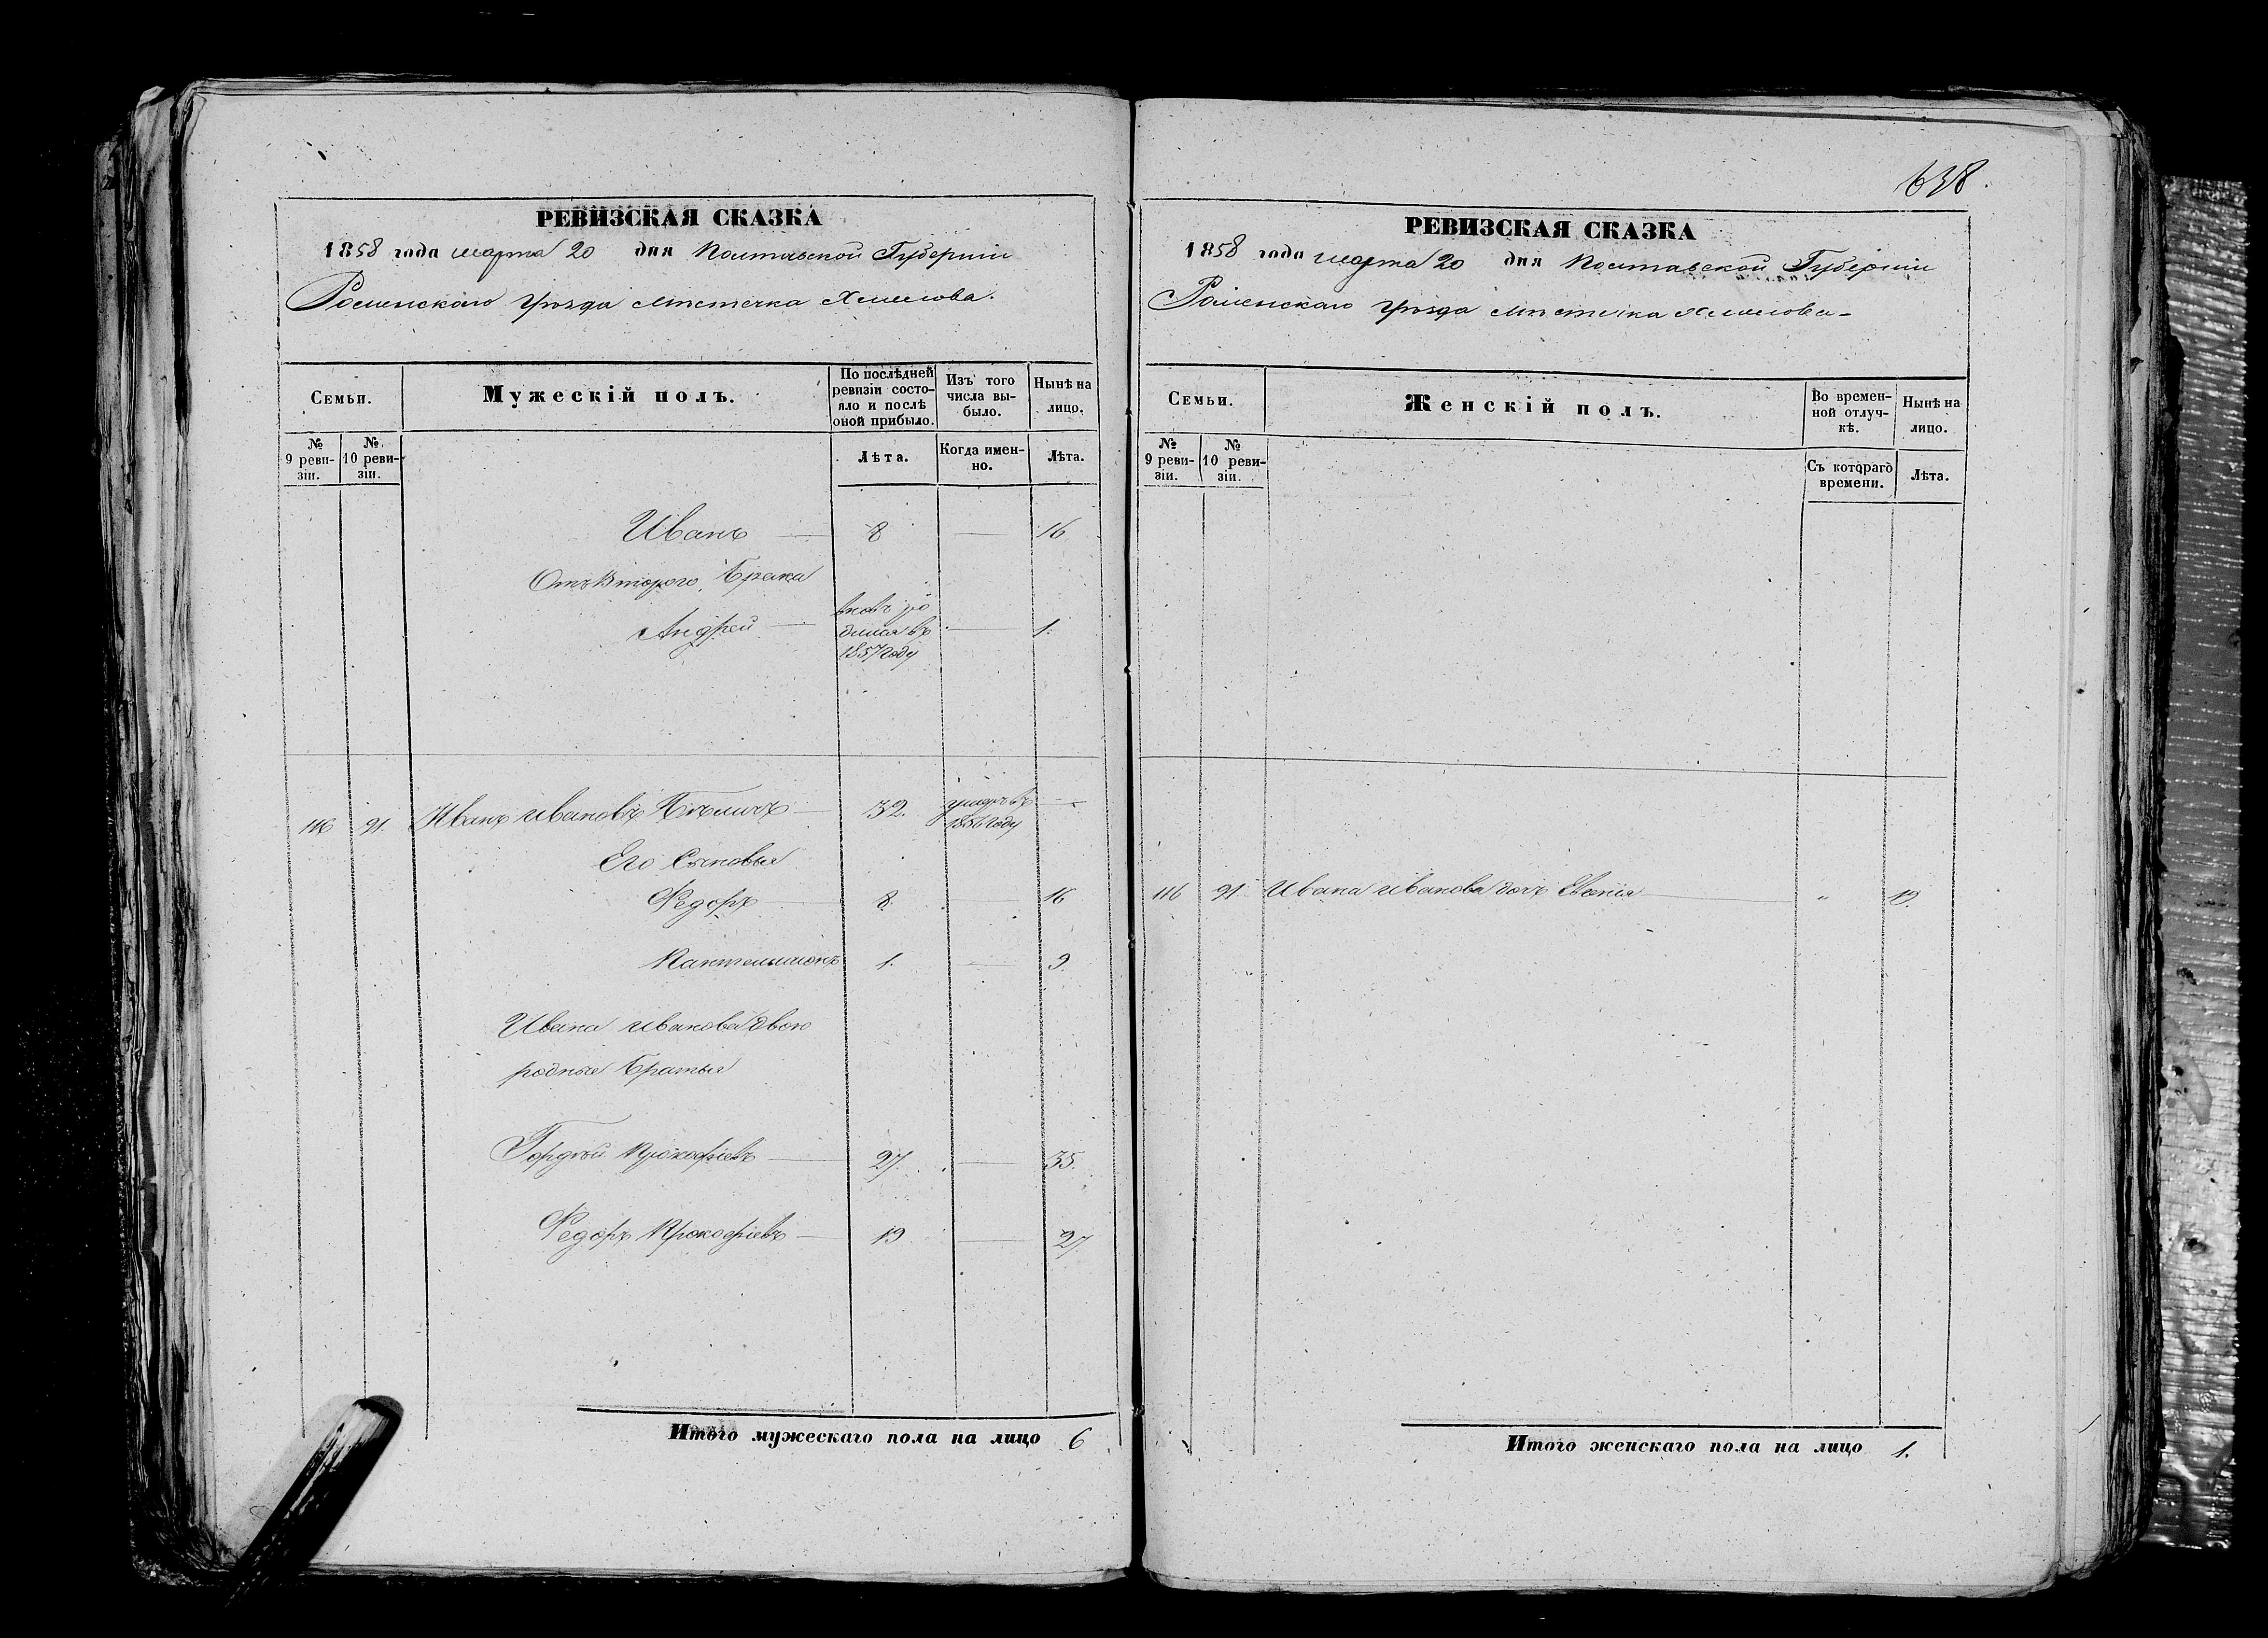 РЕВИЗСКАЯ СКАЗКА
1858 года марта 20 дня Полтавской Губернии
Роменского уѣзда мѣстечка Хмелова.
Семьи.
Мужескій полъ.
По послѣдней ревизіи состояло и послѣ оной прибыло.
Изъ того числа выбыло.
Нынѣ на лицо.
№ 9 ревизіи.
№ 10 ревизіи.
Лѣта.
Когда именно.
Лѣта.
Иванъ 8 — 16
Отъ Второго Брака
Андрей вновь родился въ 1857 году — 1.
116 91. Иванъ Ивановъ 32. умеръ въ 1856 году —
Его Сыновья
Федоръ 8. — 16
Пантелимонъ 1. — 9.
Ивана Иванова двою
родные Братья
Гордѣй Прокофіевъ 27. — 35.
Федоръ Прокофіевъ 19 — 27.
Итого мужескаго пола на лицо 6
638.
РЕВИЗСКАЯ СКАЗКА
1858 года марта 20 дня Полтавской Губерніи
Роменскаго уѣзда мѣстечка Хмелова
Семьи.
Женскій полъ.
Во временной отлучкѣ.
Нынѣ на лицо.
№ 9 ревизіи.
№ 10 ревизіи.
Съ котораго времени.
Лѣта.
116 91 Ивана Иванова дочь " 19.
Итого женскаго пола на лицо 1.